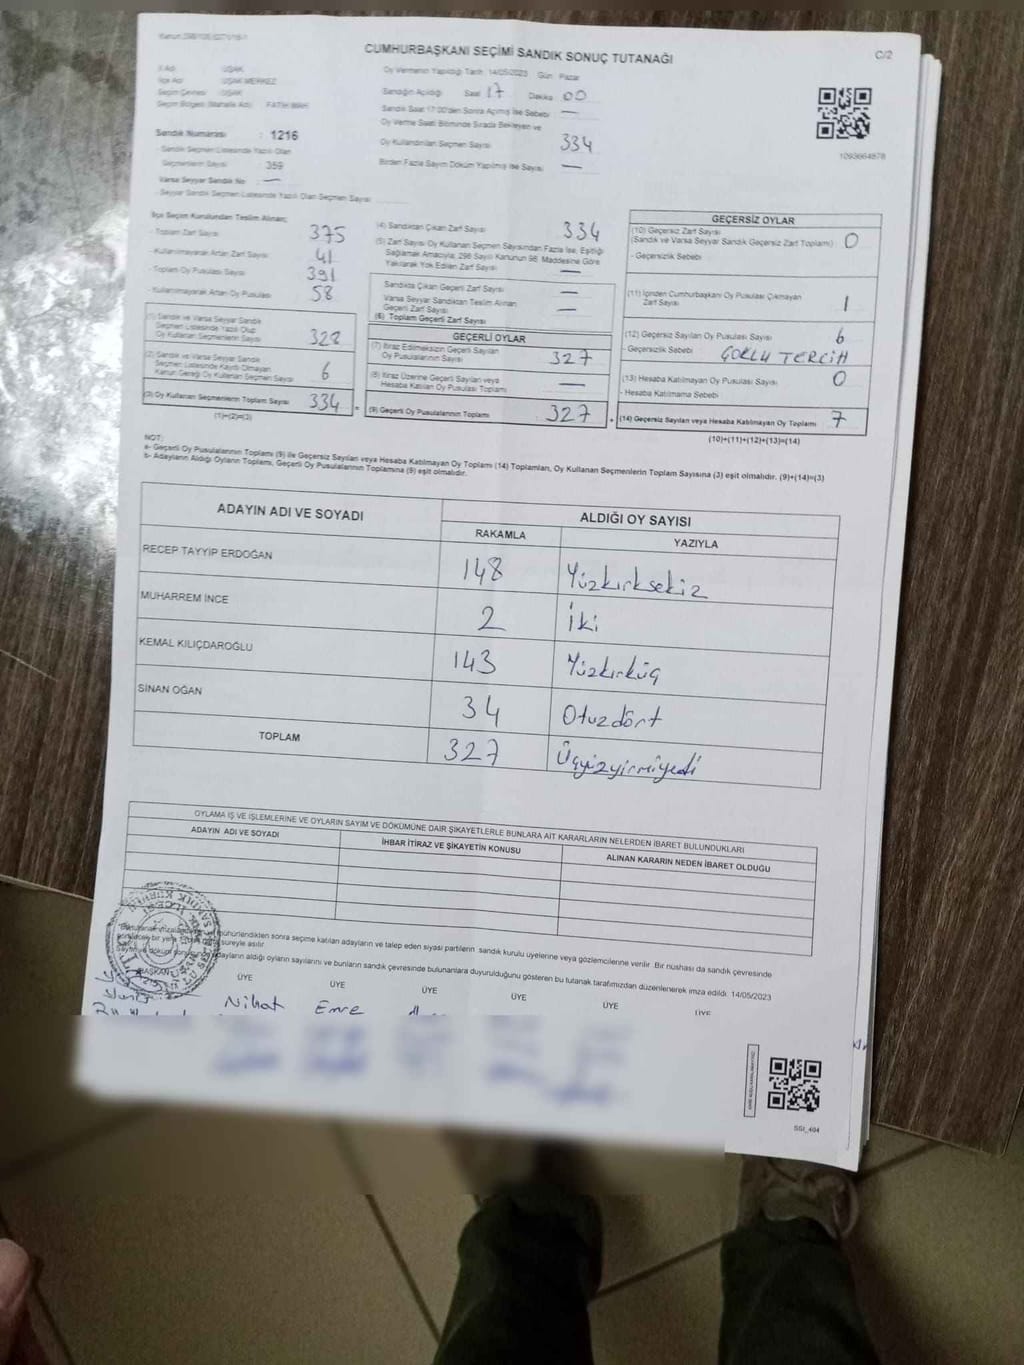 Kanun 298/105,6271/16-1
CUMHURBAŞKANI SEÇİMİ SANDIK SONUÇ TUTANAĞI
C/2
İl Adı : UŞAK
İlçe Adı : UŞAK MERKEZ
Seçim Çevresi : UŞAK
Seçim Bölgesi (Mahalle Adı) : FATİH MAH.
Sandık Numarası : 1216
- Sandık Seçmen Listesinde Yazılı Olan
Seçmenlerin Sayısı : 359
Varsa Seyyar Sandık No : —
- Seyyar Sandık Seçmen Listesinde Yazılı Olan Seçmen Sayısı :
Oy Vermenin Yapıldığı Tarih : 14/05/2023 Gün : Pazar
Sandığın Açıldığı Saat 17 Dakika 00
Sandık Saat 17:00'den Sonra Açılmış İse Sebebi : —
Oy Verme Saati Bitiminde Sırada Bekleyen ve
Oy Kullandırılan Seçmen Sayısı : 334
Birden Fazla Sayım Döküm Yapılmış İse Sayısı : —
1093664878
İlçe Seçim Kurulundan Teslim Alınan;
- Toplam Zarf Sayısı : 375
- Kullanılmayarak Artan Zarf Sayısı : 41
- Toplam Oy Pusulası Sayısı : 391
- Kullanılmayarak Artan Oy Pusulası : 58
(1) Sandık ve Varsa Seyyar Sandık
Seçmen Listesinde Yazılı Olup
Oy Kullanan Seçmenlerin Sayısı : 328
(2) Sandık ve Varsa Seyyar Sandık
Seçmen Listesinde Kayıtlı Olmayan
Kanun Gereği Oy Kullanan Seçmen Sayısı : 6
(3) Oy Kullanan Seçmenlerin Toplam Sayısı : 334 =
(1)+(2)=(3)
(4) Sandıktan Çıkan Zarf Sayısı : 334
(5) Zarf Sayısı Oy Kullanan Seçmen Sayısından Fazla İse, Eşitliği
Sağlamak Amacıyla, 298 Sayılı Kanunun 98. Maddesine Göre
Yakılarak Yok Edilen Zarf Sayısı : —
Sandıkta Çıkan Geçerli Zarf Sayısı : —
Varsa Seyyar Sandıktan Teslim Alınan
Geçerli Zarf Sayısı : —
(6) Toplam Geçerli Zarf Sayısı
GEÇERLİ OYLAR
(7) İtiraz Edilmeksizin Geçerli Sayılan
Oy Pusulalarının Sayısı : 327
(8) İtiraz Üzerine Geçerli Sayılan veya
Hesaba Katılan Oy Pusulası Toplamı : —
(9) Geçerli Oy Pusulalarının Toplamı : 327 +
GEÇERSİZ OYLAR
(10) Geçersiz Zarf Sayısı
(Sandık ve Varsa Seyyar Sandık Geçersiz Zarf Toplamı) : 0
- Geçersizlik Sebebi
(11) İçinden Cumhurbaşkanı Oy Pusulası Çıkmayan
Zarf Sayısı : 1
(12) Geçersiz Sayılan Oy Pusulası Sayısı : 6
- Geçersizlik Sebebi : ÇOKLU TERCİH
(13) Hesaba Katılmayan Oy Pusulası Sayısı : 0
- Hesaba Katılmama Sebebi
(14) Geçersiz Sayılan veya Hesaba Katılmayan Oy Toplamı : 7
(10)+(11)+(12)+(13)=(14)
NOT:
a- Geçerli Oy Pusulalarının Toplamı (9) ile Geçersiz Sayılan veya Hesaba Katılmayan Oy Toplamı (14) Toplamları, Oy Kullanan Seçmenlerin Toplam Sayısına (3) eşit olmalıdır. (9)+(14)=(3)
b- Adayların Aldığı Oyların Toplamı, Geçerli Oy Pusulalarının Toplamına (9) eşit olmalıdır.
ADAYIN ADI VE SOYADI
ALDIĞI OY SAYISI
RAKAMLA YAZIYLA
RECEP TAYYİP ERDOĞAN 148 Yüzkırksekiz
MUHARREM İNCE 2 İki
KEMAL KILIÇDAROĞLU 143 Yüzkırküç
SİNAN OĞAN 34 Otuzdört
TOPLAM 327 Üçyüzyirmiyedi
OYLAMA İŞ VE İŞLEMLERİNE VE OYLARIN SAYIM VE DÖKÜMÜNE DAİR ŞİKAYETLERLE BUNLARA AİT KARARLARIN NELERDEN İBARET BULUNDUKLARI
ADAYIN ADI VE SOYADI
İHBAR İTİRAZ VE ŞİKAYETİN KONUSU
ALINAN KARARIN NEDEN İBARET OLDUĞU
mühürlendikten sonra seçime katılan adayların ve talep eden siyasi partilerin sandık kurulu üyelerine veya gözlemcilerine verilir. Bir nüshası da sandık çevresinde
süreyle asılır.
adayların aldığı oyların sayılarını ve bunların sandık çevresinde bulunanlara duyurulduğunu gösteren bu tutanak tarafımızdan düzenlenerek imza edildi. 14/05/2023
BAŞKAN ÜYE ÜYE ÜYE ÜYE ÜYE ÜYE
Nihat Emre
SSI_404